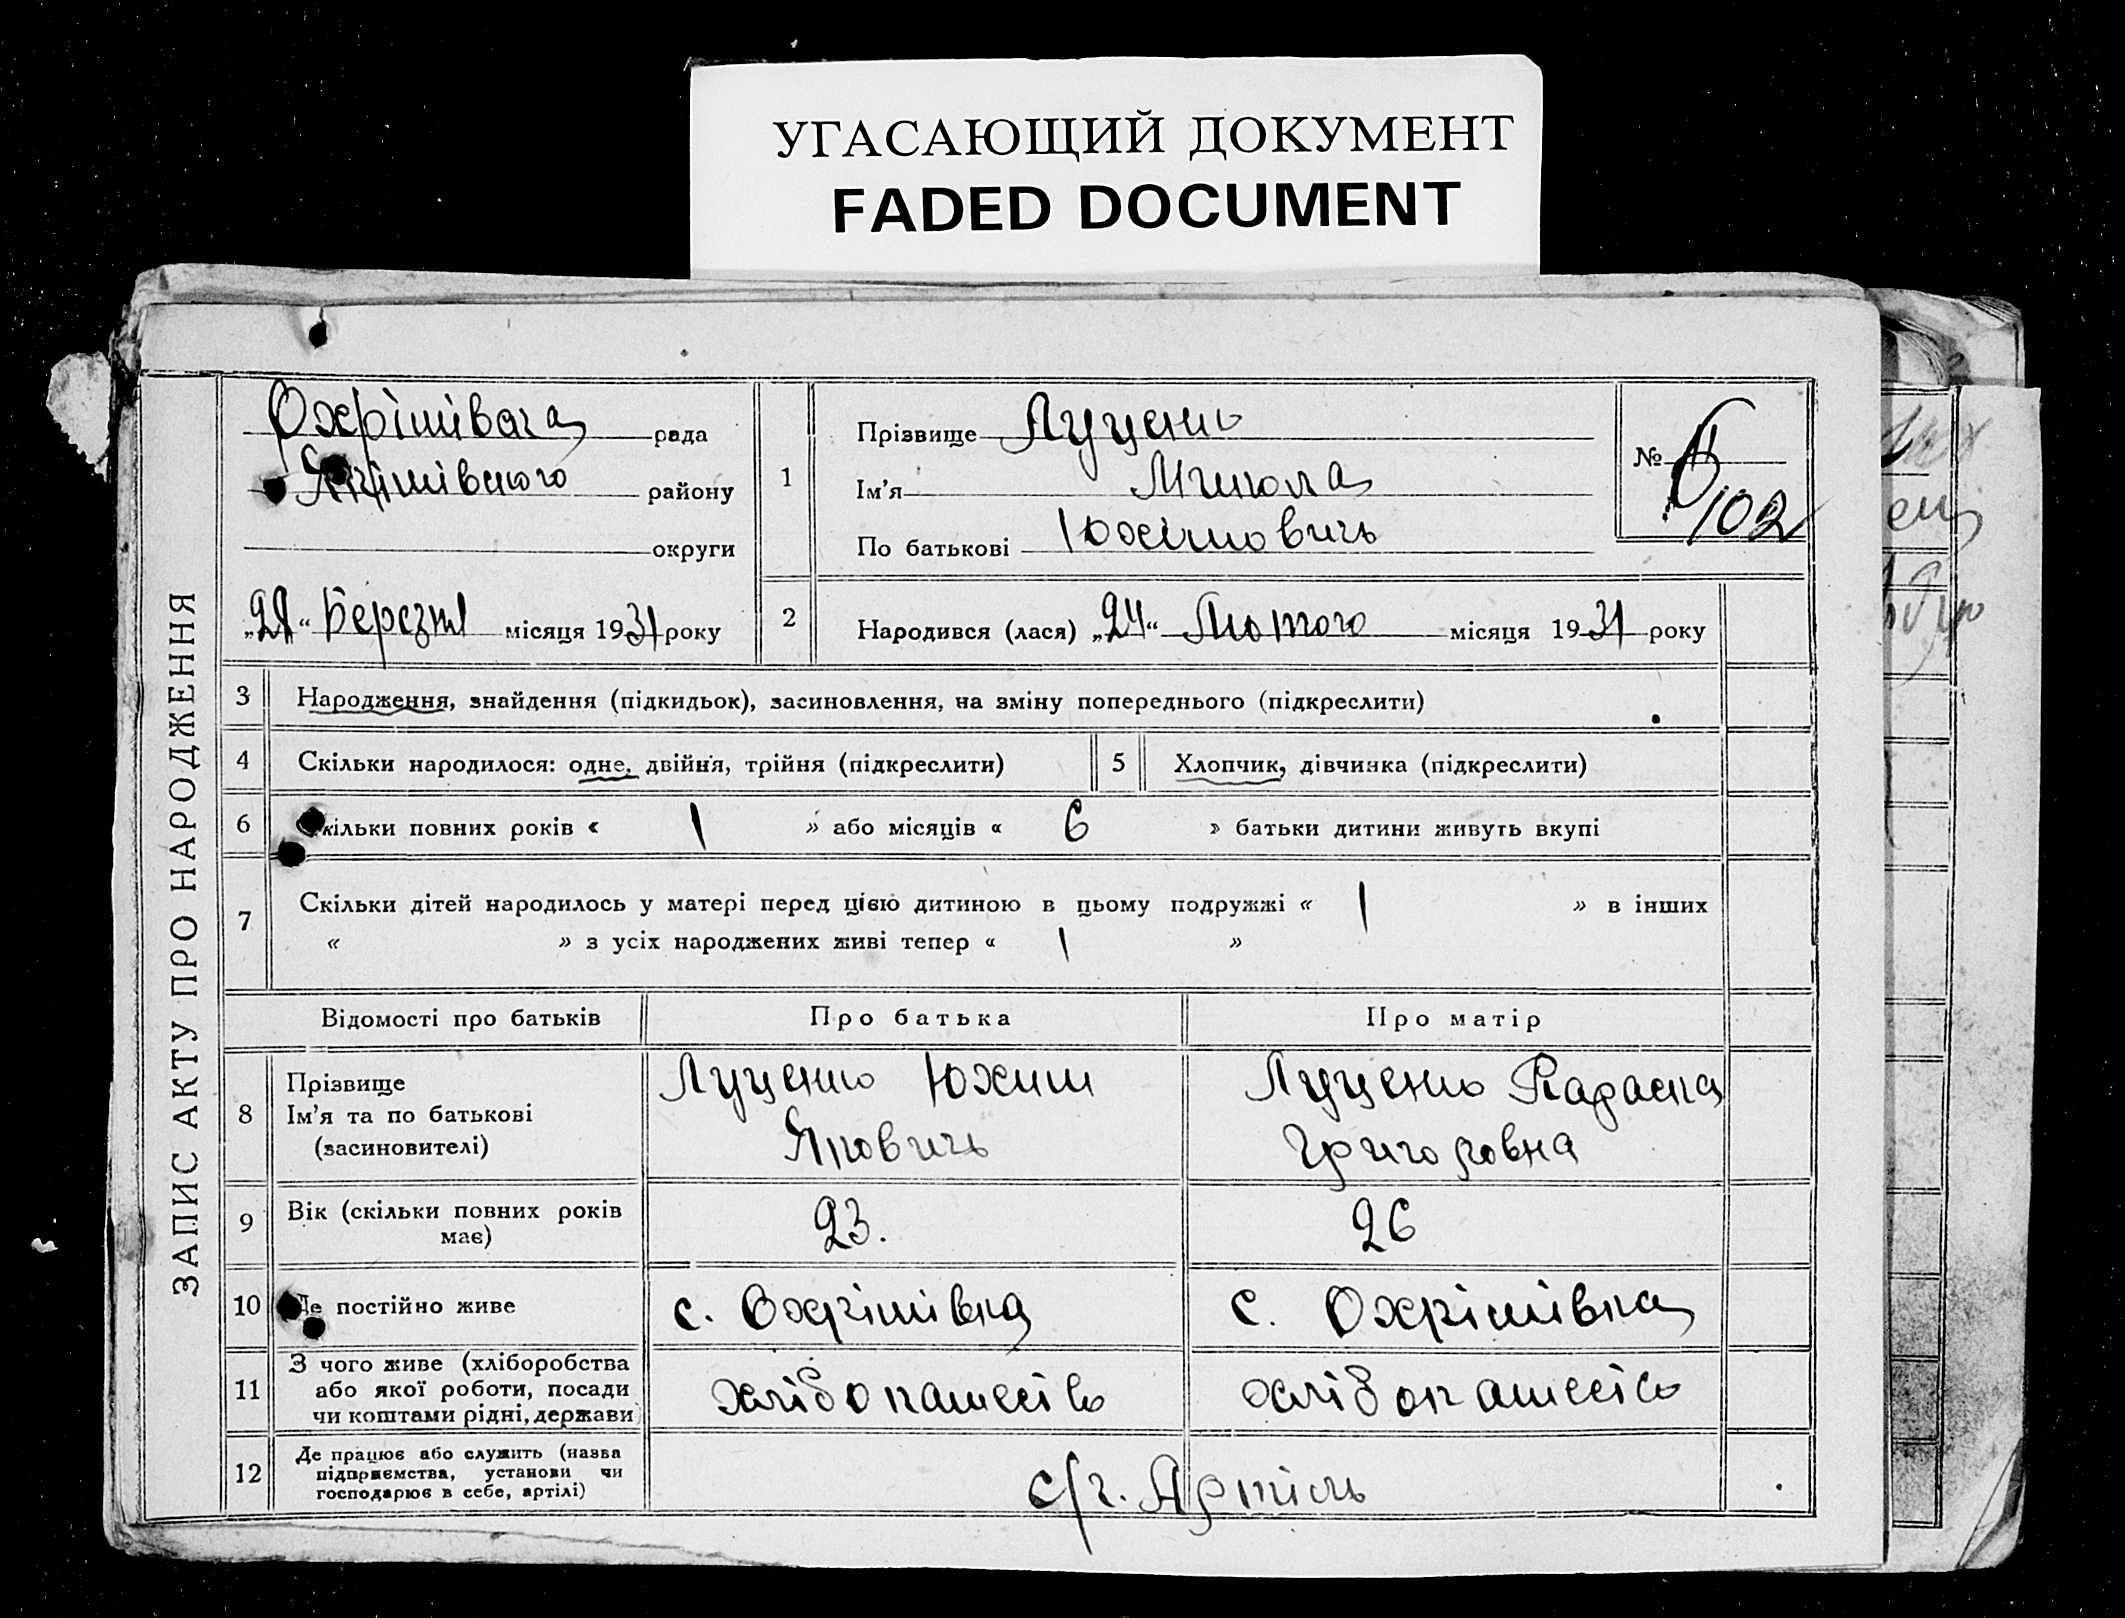 УГАСАЮЩИЙ ДОКУМЕНТ
FADED DOCUMENT
ЗАПИС АКТУ ПРО НАРОДЖЕННЯ
Охрімівська рада
Якимівського району
округи
„28“ Березня місяця 1931 року
1
Прізвище Луценко
Ім’я Микола
По батькові Юхимовичь
№ 6
102
2
Народився (лася) „24“ Лютого місяця 1931 року
3 Народження, знайдення (підкидьок), засиновлення, на зміну попереднього (підкреслити)
4 Скільки народилося: одне, двійня, трійня (підкреслити)
5 Хлопчик, дівчинка (підкреслити)
6 Скільки повних років « 1 » або місяців « 6 » батьки дитини живуть вкупі
7 Скільки дітей народилось у матері перед цією дитиною в цьому подружжі « 1 » в інших
« » з усіх народжених живі тепер « 1 »
Відомості про батьків Про батька Про матір
8 Прізвище
Ім’я та по батькові
(засиновителі)
Луценко Юхим
Яковичь
Луценко Параска
Григоровна
9 Вік (скільки повних років
має)
23.
26
10 Де постійно живе
с. Охрімівка
с. Охрімівка
11 З чого живе (хліборобства
або якої роботи, посади
чи коштами рідні, держави)
хлібопашество
хлібопашество
12 Де працює або служить (назва
підприємства, установи чи
господарює в себе, артілі)
с/г. Артіль